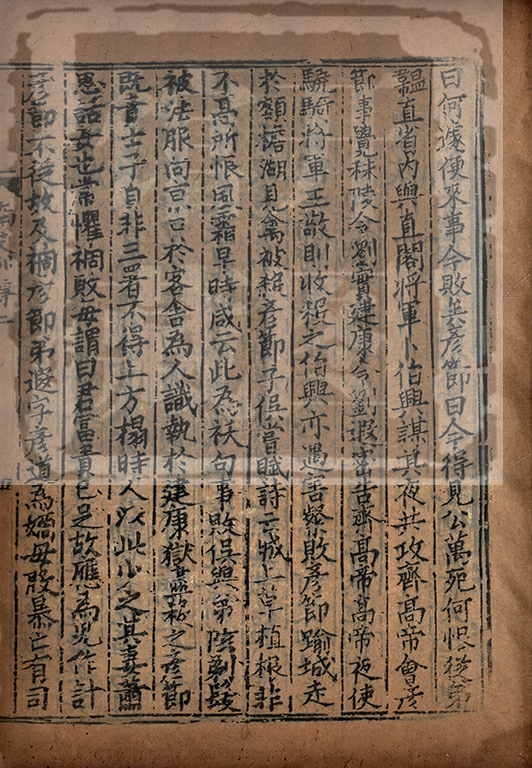 曰何遽便來事今敗矣彥節曰今得見公萬死何恨後弟
韞直省內與直閣將軍卜伯興謀其夜共攻齊髙帝會彥
節事覺秣陵令劉實建康令劉遐宻告齊髙帝髙帝夜使
驍騎將軍王敬則收殺之伯興亦遇害粲敗彥節踰城走
於額檐湖見禽被殺彥節子俁嘗賦詩云城上草植根非
不髙所恨風霜早時咸云此為祅句事敗俁與弟陔剃髮
被法服向京口於客舍為人識執於建康獄盡殺之彥節
既貴士子自非三署不得上方榻時人以此少之其妻蕭
思話女也常懼禍敗每謂曰君富貴已足故應為兒作計
彥節不從故及禍彥節弟遐字彥道為嫡母殷暴亡有司